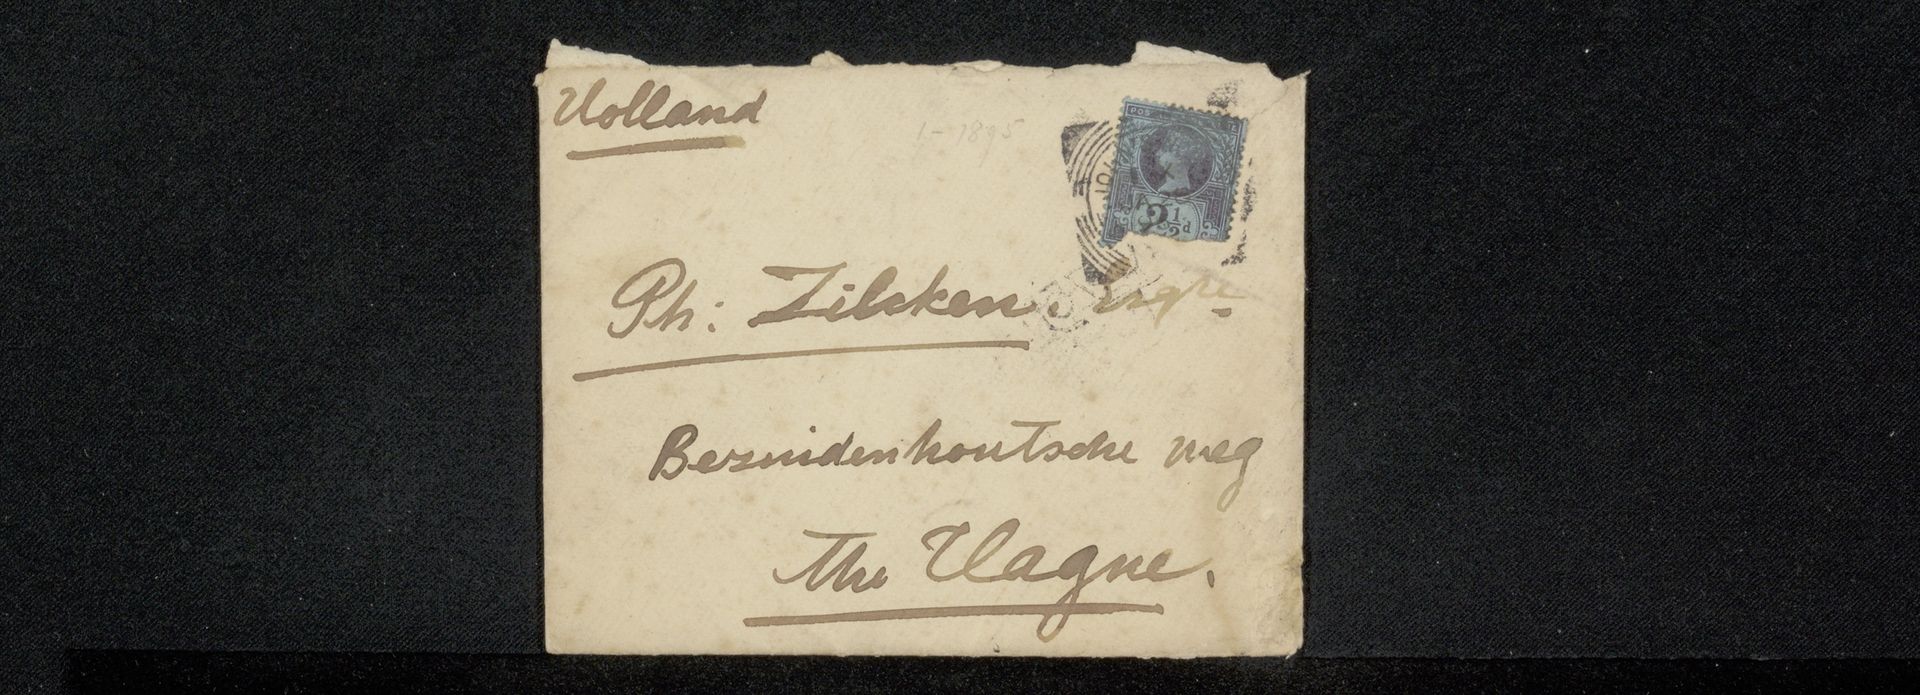 Holland
1-1895
2½d
Ph: Zilcken. Esqre.
Bezuidenhoutsche weg
The Hague.